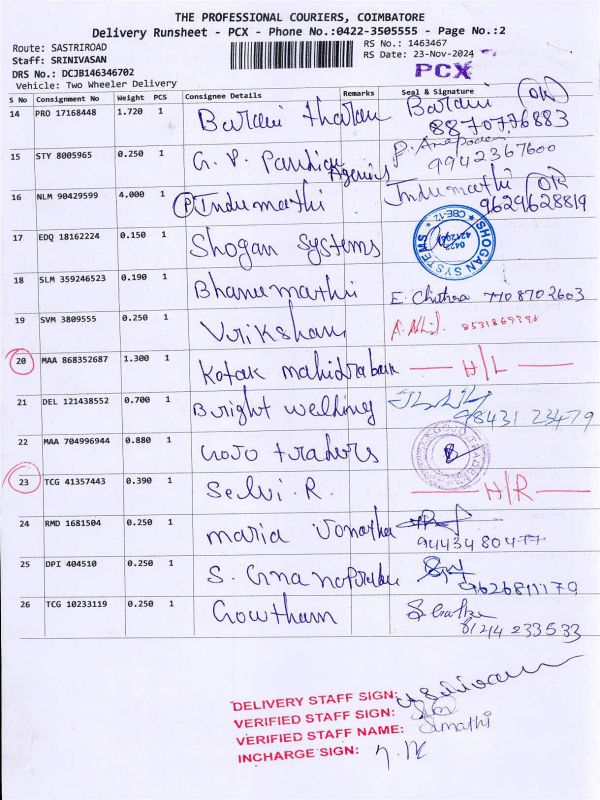 THE PROFESSIONAL COURIERS, COIMBATORE
Delivery Runsheet - PCX - Phone No.:0422-3505555 - Page No.:2
Route: SASTRIROAD
RS No.: 1463467
Staff: SRINIVASAN
RS Date: 23-Nov-2024
DRS No.: DCJB146346702
PCX
Vehicle: Two Wheeler Delivery
S No Consignment No Weight PCS Consignee Details Remarks Seal & Signature
14 PRO 17168448 1.720 1 Barani tharan Barani OK
8870776883
15 STY 8005965 0.250 1 G. P. Pandian Agencies P.
9942367600
16 NLM 90429599 4.000 1 P Indumathi Indumathi OK
9629628819
17 EDQ 18162224 0.150 1 Shogan Systems SHOGAN SYSTEMS CBE-12 0422
18 SLM 359246523 0.190 1 Bhanumathi E. Chithra 7708702603
19 SVM 3809555 0.250 1 Vriksham
20 MAA 868352687 1.300 1 Kotak mahidra bank H/L
21 DEL 121438552 0.700 1 Bright welding
98431 23479
22 MAA 704996944 0.880 1 Gojo traders
23 TCG 41357443 0.390 1 Selvi. R. H/R
24 RMD 1681504 0.250 1 maria
9443480477
25 DPI 404510 0.250 1 S.
9626811179
26 TCG 10233119 0.250 1 Gowtham
8124 233533
DELIVERY STAFF SIGN:
VERIFIED STAFF SIGN:
VERIFIED STAFF NAME: Sumathi
INCHARGE SIGN: